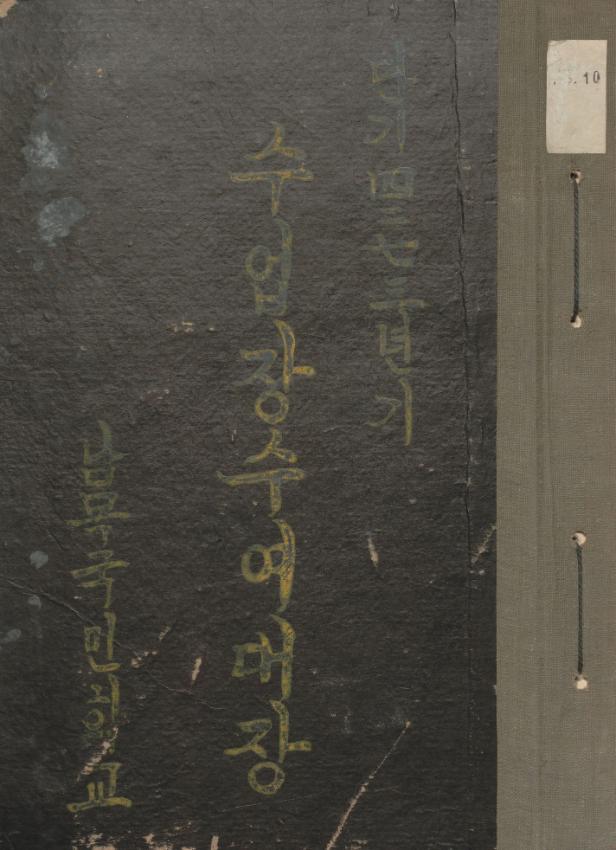 단기四二七三년기
수업장수여대장
남목국민학교
10